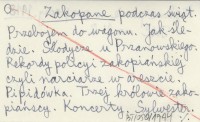 Zakopane podczas świąt.
Przebojem do wagonu. Jak śle-
dzie. Słodycze u Przanowskiego.
Rekordy policji zakopiańskiej
czyli narciarze w areszcie.
Pipidówka. Trzej królowie zako-
piańscy. Koncerty. Sylwester.